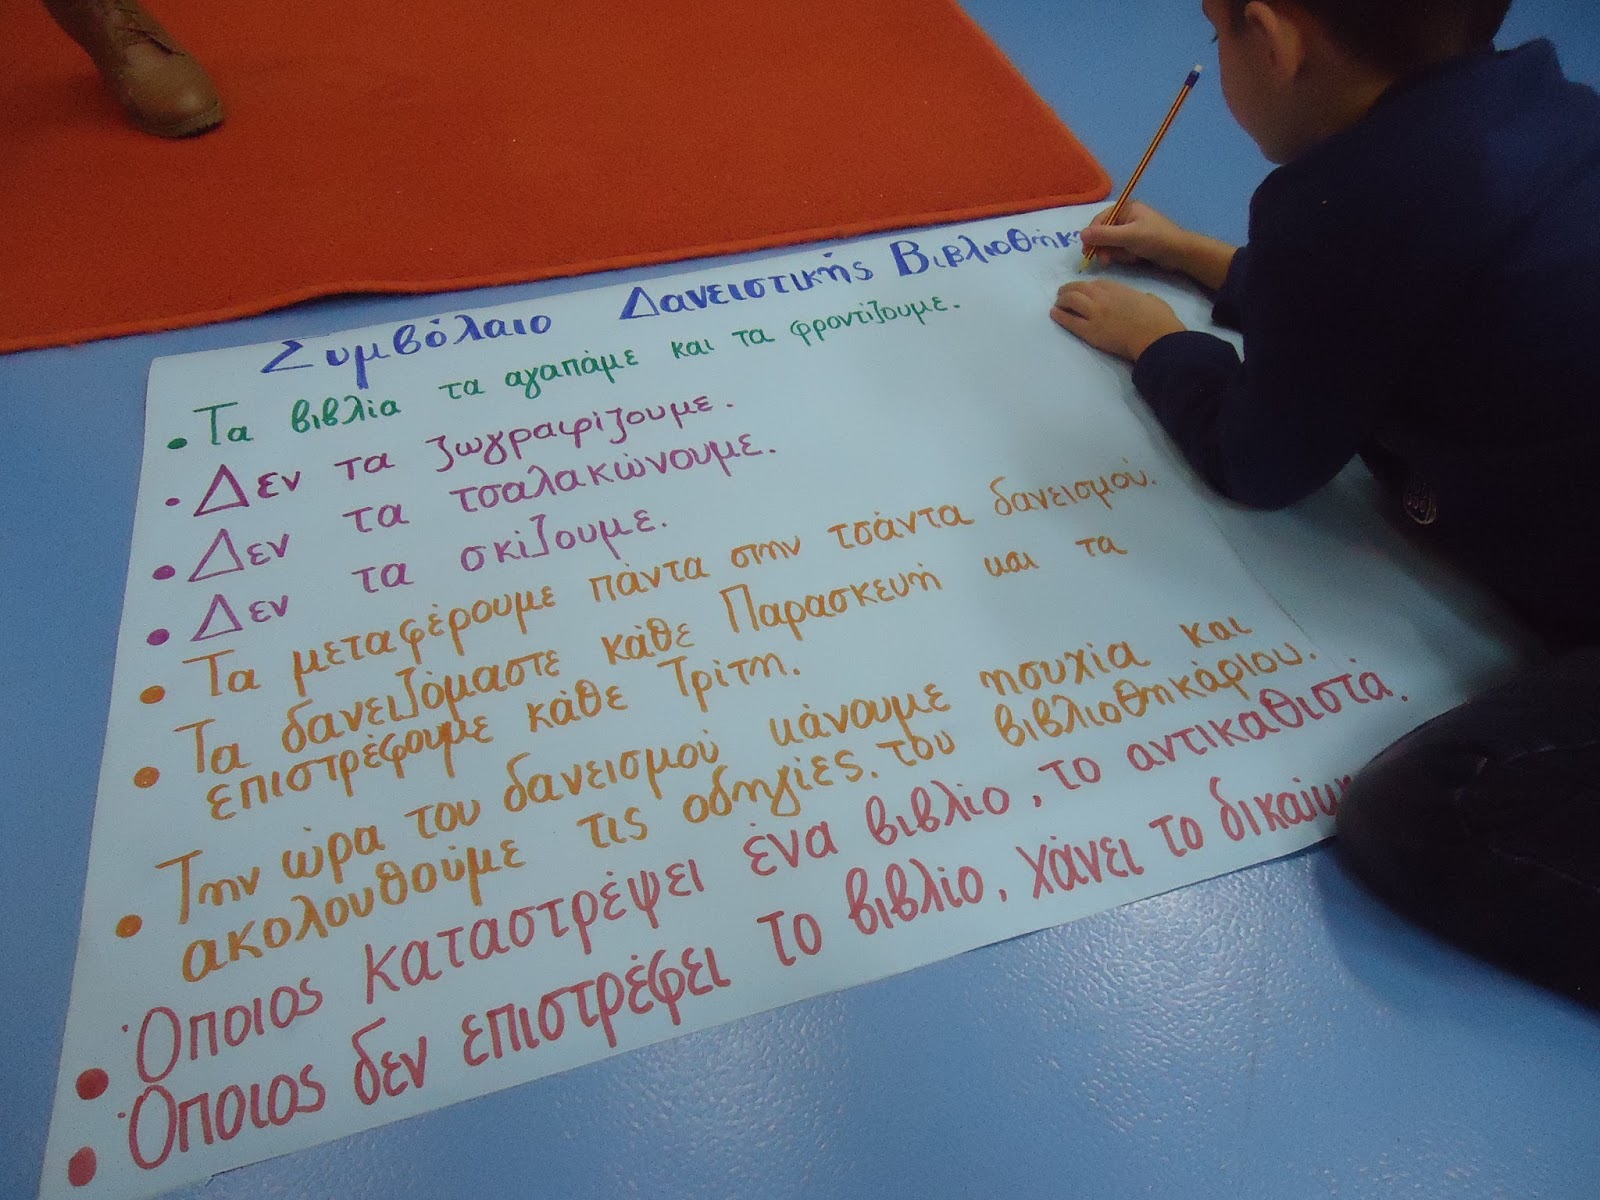 Συμβόλαιο Δανειστικής Βιβλιοθήκ
• Τα βιβλία τα αγαπάμε και τα φροντίζουμε.
• Δεν τα ζωγραφίζουμε.
• Δεν τα τσαλακώνουμε.
• Δεν τα σκίζουμε.
• Τα μεταφέρουμε πάντα στην τσάντα δανεισμού.
• Τα δανειζόμαστε κάθε Παρασκευή και τα
επιστρέφουμε κάθε Τρίτη.
• Την ώρα του δανεισμού κάνουμε ησυχία και
ακολουθούμε τις οδηγίες. του βιβλιοθηκάριου.
• Όποιος καταστρέψει ένα βιβλίο, το αντικαθιστά.
• Όποιος δεν επιστρέφει το βιβλίο, χάνει το δικαίω